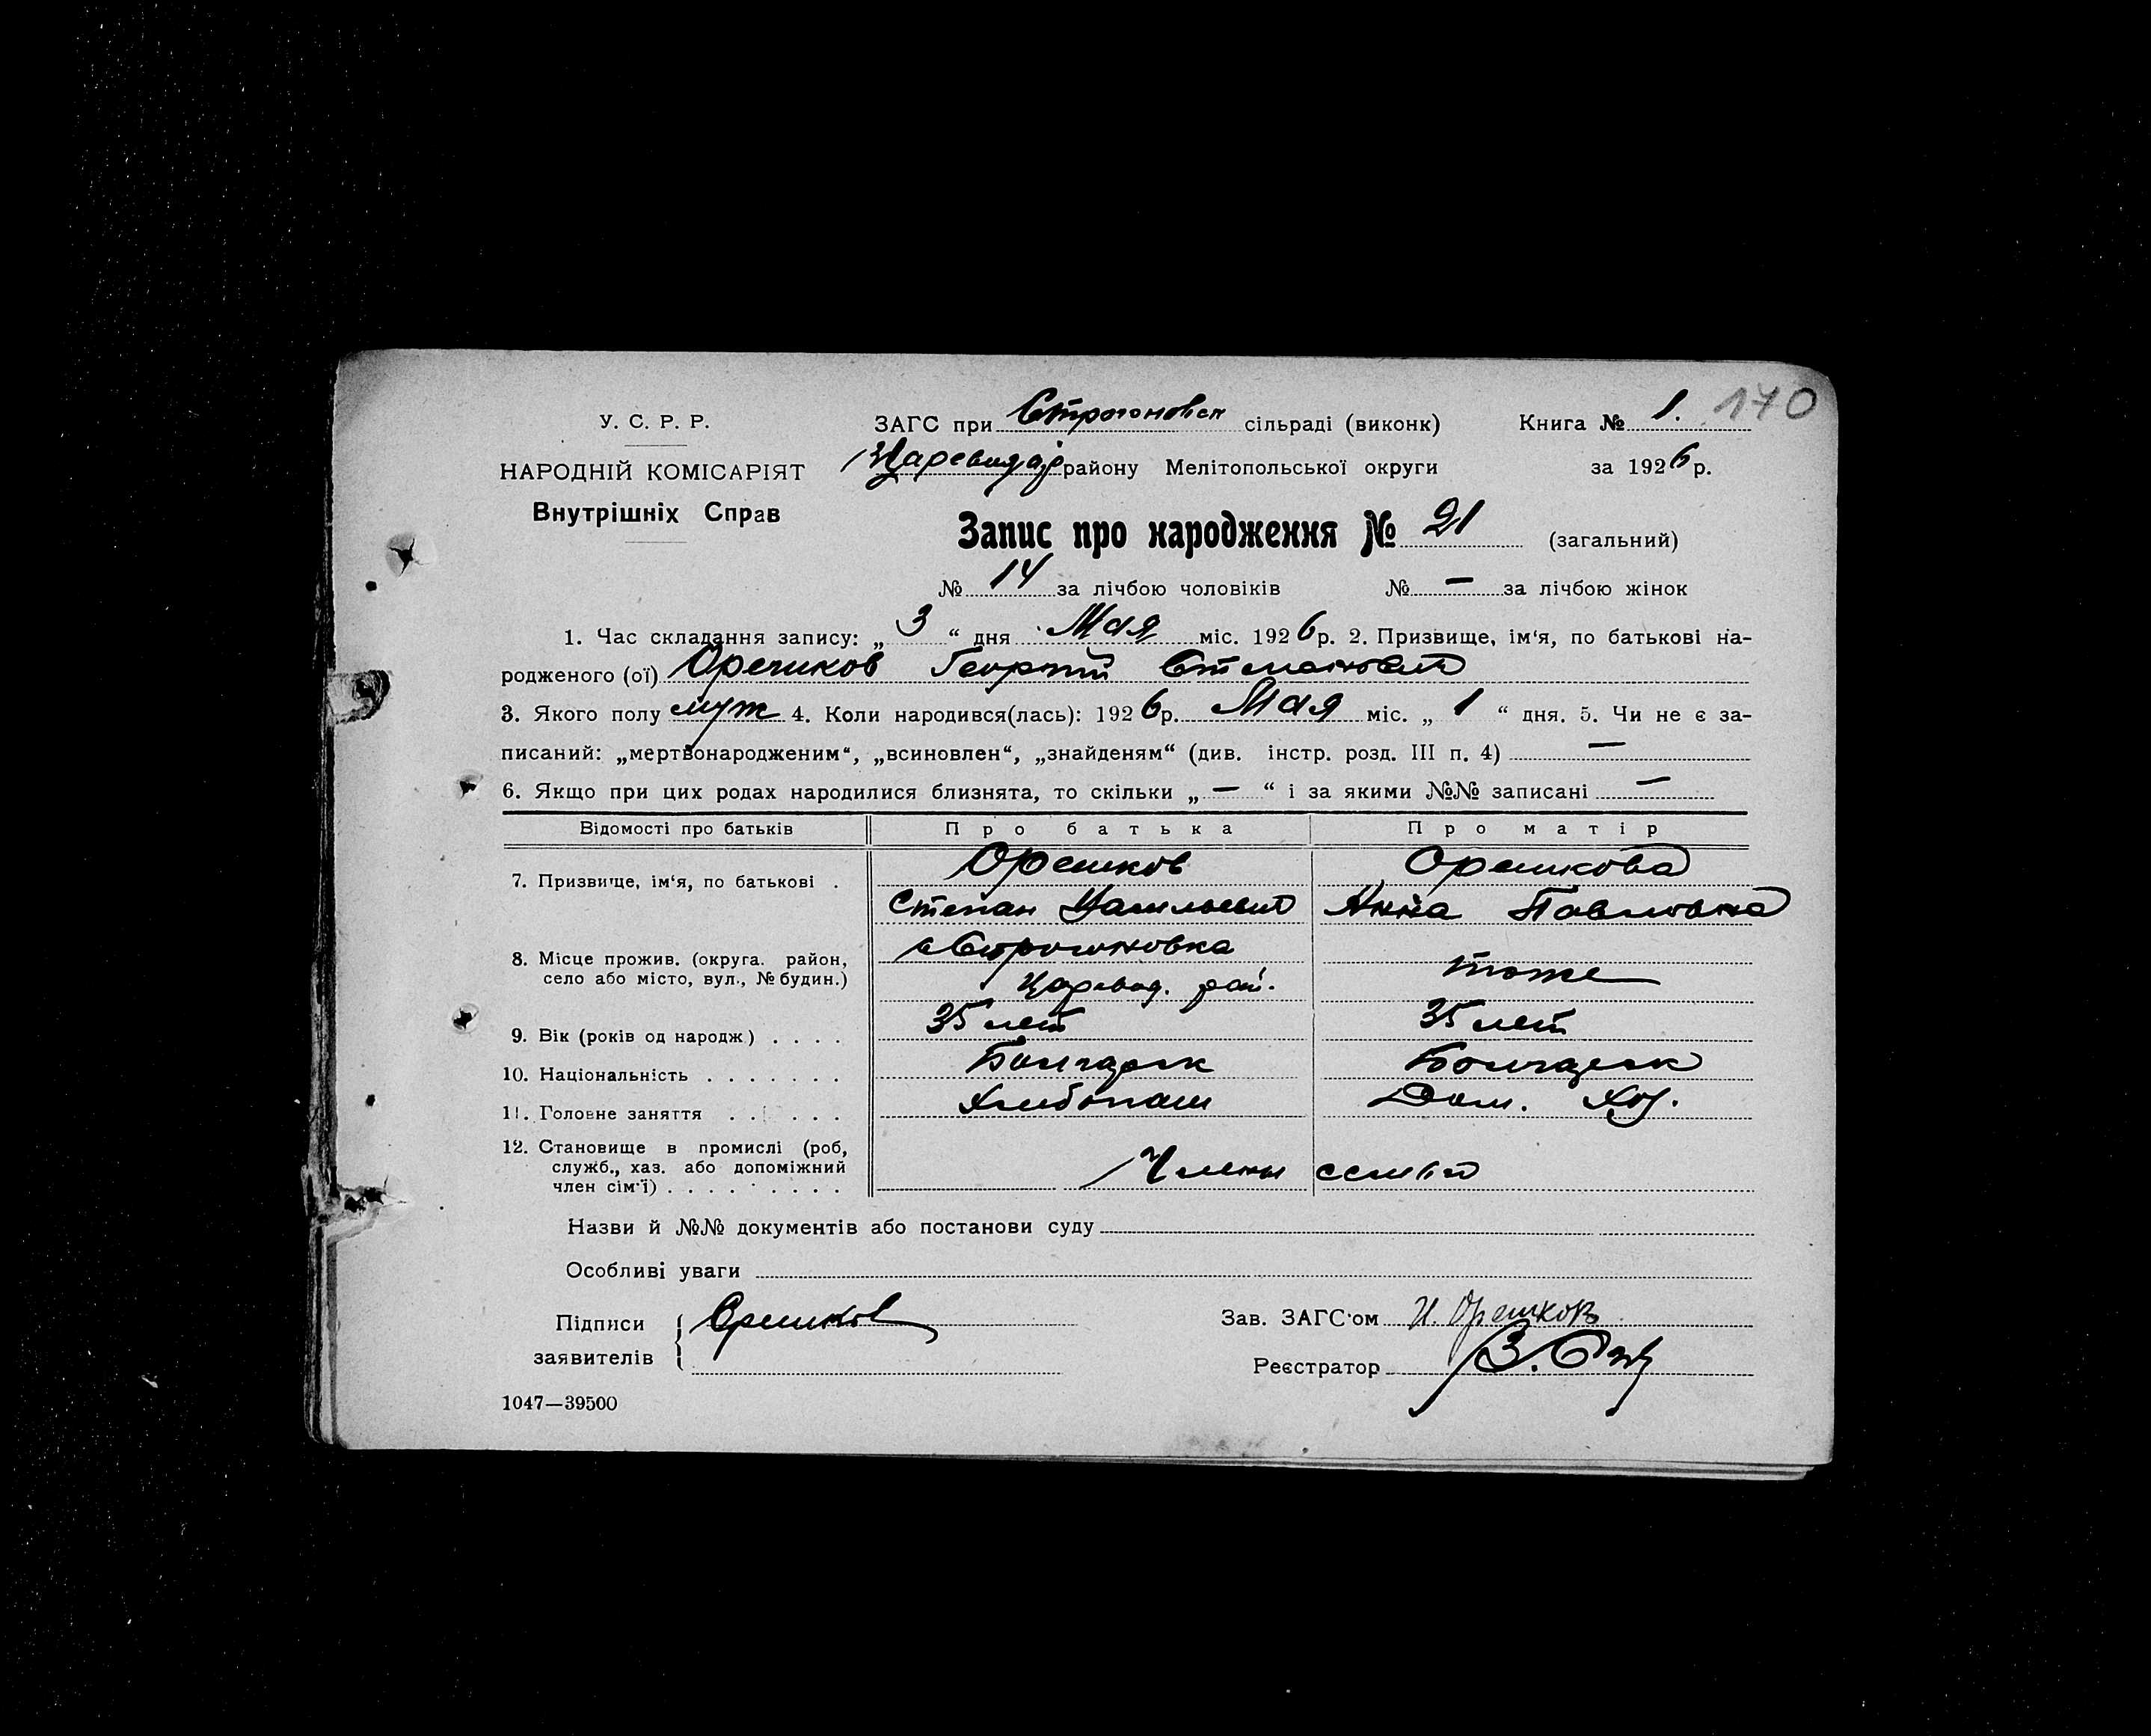 У. С. Р. Р.
НАРОДНІЙ КОМІСАРІЯТ
Внутрішніх Справ
ЗАГС при Строгоновск сільраді (виконк) Книга № 1. 170
району Мелітопольської округи за 1926 р.
Запис про народження № 21 (загальний)
№ 14 за лічбою чоловіків № — за лічбою жінок
1. Час складання запису: „ 3 “ дня Мая міс. 1926 р. 2. Призвище, ім‘я, по батькові на-
родженого (ої) Орешков Георгий Степанович
3. Якого полу муж 4. Коли народився(лась): 1926 р. Мая міс. „ 1 “ дня. 5. Чи не є за-
писаний: „мертвонародженим“, „всиновлен“, „знайденям“ (див. інстр. розд. III п. 4) —
6. Якщо при цих родах народилися близнята, то скільки „ — “ і за якими №№ записані —
Відомості про батьків Про батька Про матір
7. Призвище, ім‘я, по батькові . Орешков Орешкова
Степан Васильевич Анна Павловна
8. Місце прожив. (округа. район, село або місто, вул., № будин.) с Строгоновка
Царевод. рай. тоже
9. Вік (років од народж) . . . . 35 лет 35 лет
10. Національність . . . . . . . Болгарск Болгарск
11. Головне заняття . . . . . . Хлибопаш Дом. Хоз.
12. Становище в промислі (роб,
служб., хаз. або допоміжний
член сім‘ї) . . . . . . . . . Члены семьи
Назви й №№ документів або постанови суду
Особливі уваги
Підписи Орешков Зав. ЗАГС‘ом И. Орешковъ
заявителів Реєстратор
1047—39500